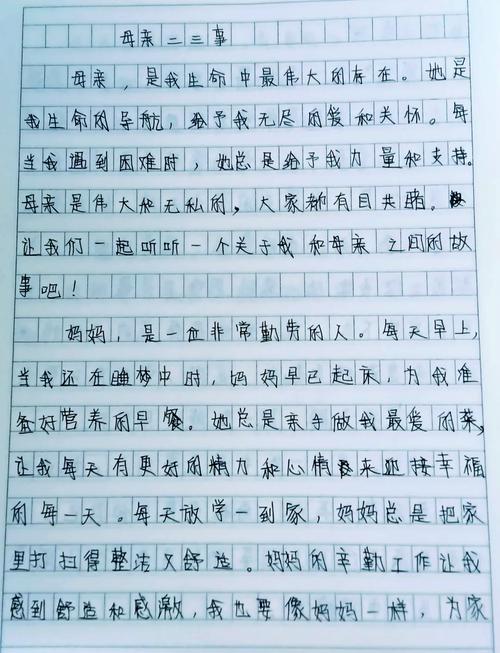 母亲二三事
母亲，是我生命中最伟大的存在。她是
我生命的导航，给予我无尽的爱和关怀。每
当我遇到困难时，她总是给予我力量和支持。
母亲是伟大和无私的，大家都有目共睹。
让我们一起听听一个关于我和母亲之间的故
事吧！
妈妈，是一位非常勤劳的人。每天早上，
当我还在睡梦中时，妈妈早已起床，为我准
备好营养的早餐。她总是亲手做我最爱的菜，
让我每天有更好的精力和心情来迎接幸福
的每一天。每天放学一到家，妈妈总是把家
里打扫得整洁又舒适。妈妈的辛勤工作让我
感到舒适和感激，我也要像妈妈一样，为家